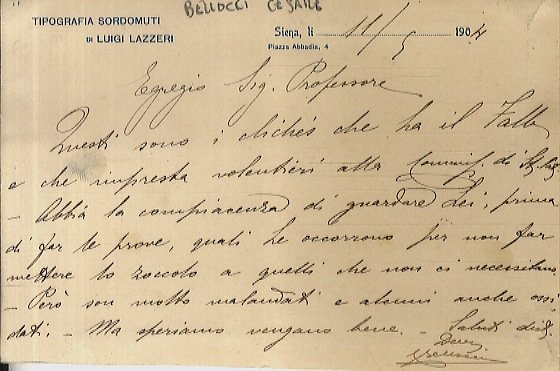 BELLUCCI CESARE
TIPOGRAFIA SORDOMUTI
DI LUIGI LAZZERI
Siena, li 11/5 1904
Piazza Abbadia, 4
Egregio Sig. Professore
Questi sono i clichés che ha il
e che impresta volentieri alla Commiss. di
- Abbia la compiacenza di guardare Lei, prima
di far le prove, quali le occorrono per non far
mettere lo zoccolo a quelli che non ci necessitano
- Però son molto malandati e alcuni anche ossi
dati. - Ma speriamo vengano bene. - Saluti